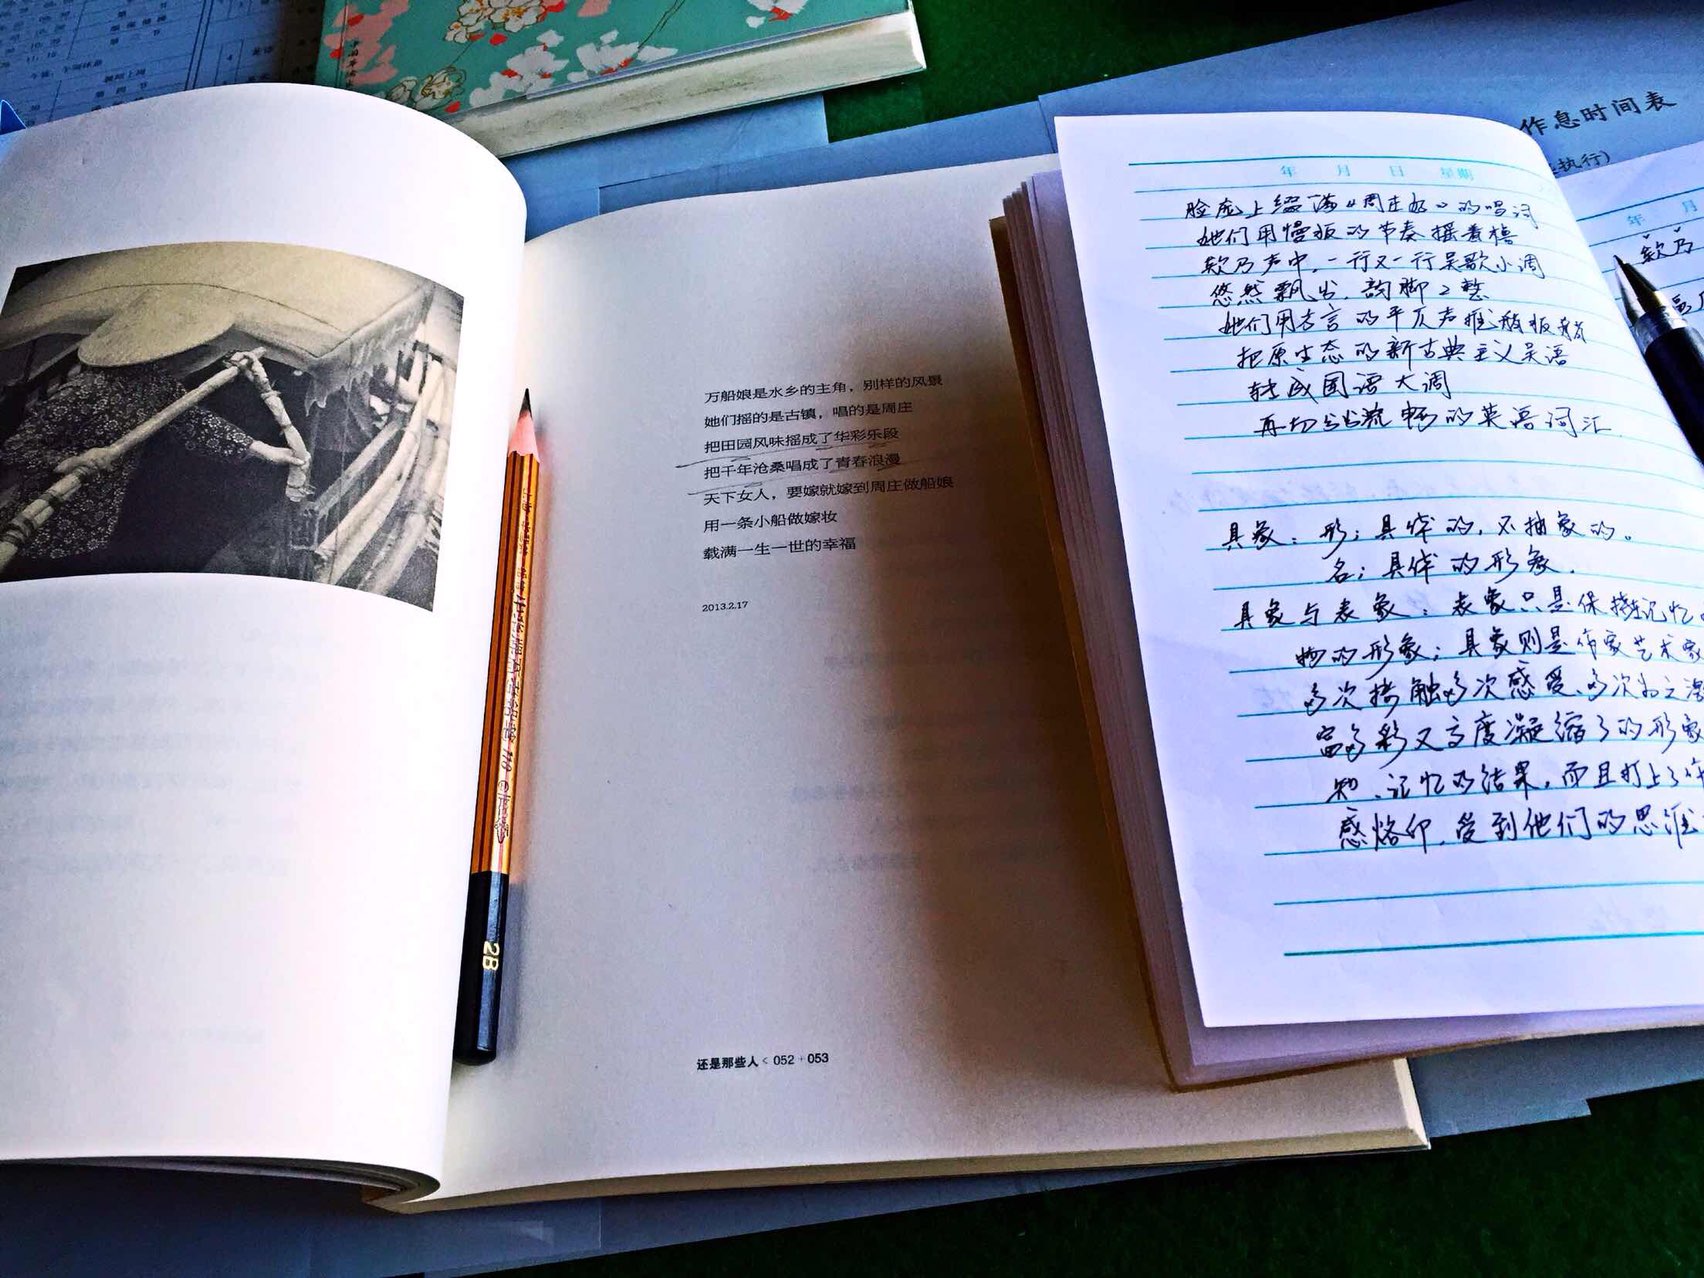 万船娘是水乡的主角，别样的风景
她们摇的是古镇，唱的是周庄
把田园风味摇成了华彩乐段
把千年沧桑唱成了青春浪漫
天下女人，要嫁就嫁到周庄做船娘
用一条小船做嫁妆
载满一生一世的幸福
2013.2.17
还是那些人 < 052 + 053
2B
作息时间表
执行）
年 月 日 星期
脸庞上缀满《周庄好》的唱词
她们用慢板的节奏摇着橹
欸乃声中，一行又一行吴歌小调
悠然飘出，韵脚工整
她们用方言的平仄声
把原生态的新古典主义吴语
转成国语大调
再切出流畅的英语词汇
具象：形；具体的，不抽象的。
名；具体的形象．
具象与表象：表象只是保持在记忆
物的形象；具象则是作家艺术家
多次接触多次感受、多次
富多彩又高度凝缩了的形象
知、记忆的结果，而且打上了作
感烙印，受到他们的思维
年 月
欸乃